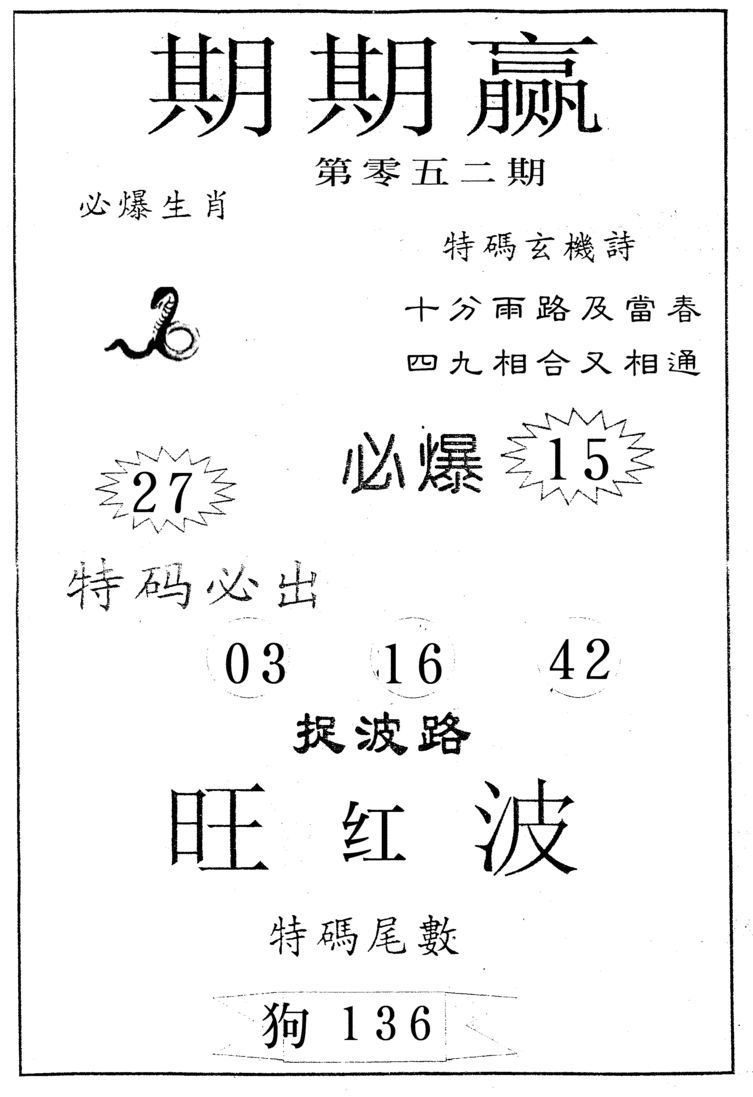 期期赢
第零五二期
必爆生肖
特碼玄機詩
十分雨路及當春
四九相合又相通
27
必爆 15
特码必出
03 16 42
捉波路
旺红波
特碼尾數
狗 136